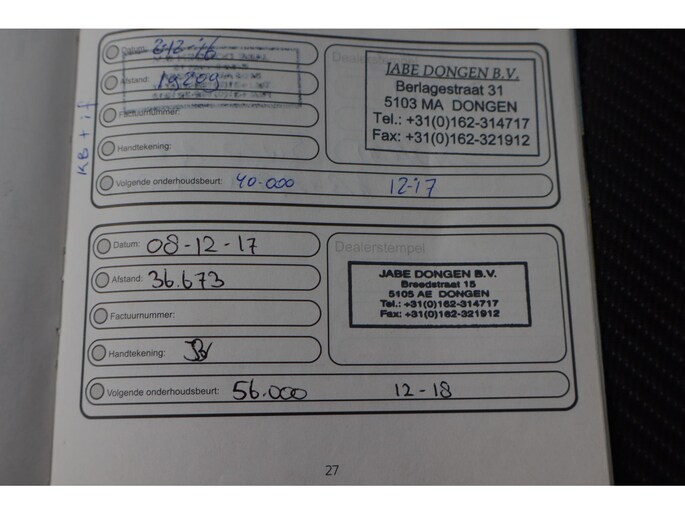 Datum:
Afstand: 19209
Factuurnummer:
Handtekening:
Volgende onderhoudsbeurt: 40.000 12-17
JABE DONGEN B.V.
Berlagestraat 31
5103 MA DONGEN
Tel.: +31(0)162-314717
Fax: +31(0)162-321912
KB + if
Datum: 08-12-17
Afstand: 36.673
Factuurnummer:
Handtekening:
Volgende onderhoudsbeurt: 56.000 12-18
Dealerstempel
JABE DONGEN B.V.
Breedstraat 15
5105 AE DONGEN
Tel.: +31(0)162-314717
Fax: +31(0)162-321912
27